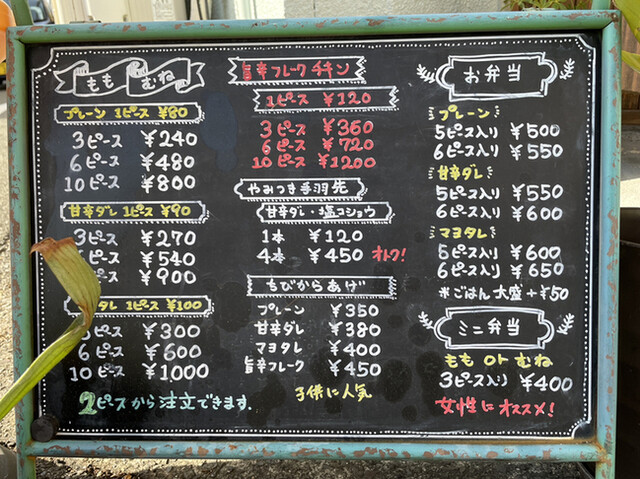 もも むね
プレーン 1ピース ¥80
3ピース ¥240
6ピース ¥480
10ピース ¥800
甘辛ダレ 1ピース ¥90
3ピース ¥270
ピース ¥540
ピース ¥900
タレ 1ピース ¥100
ピース ¥300
6ピース ¥600
10ピース ¥1000
2ピースから注文できます.
旨辛フレークチキン
1ピース ¥120
3ピース ¥360
6ピース ¥720
10ピース ¥1200
やみつき手羽先
甘辛ダレ・塩コショウ
1本 ¥120
4本 ¥450 オトク!
ちびからあげ
プレーン ¥350
甘辛ダレ ¥380
マヨタレ ¥400
旨辛フレーク ¥450
子供に人気
お弁当
プレーン
5ピース入り ¥500
6ピース入り ¥550
甘辛ダレ
5ピース入り ¥550
6ピース入り ¥600
マヨタレ
5ピース入り ¥600
6ピース入り ¥650
※ごはん大盛+¥50
ミニ弁当
もも or むね
3ピース入り ¥400
女性にオススメ!